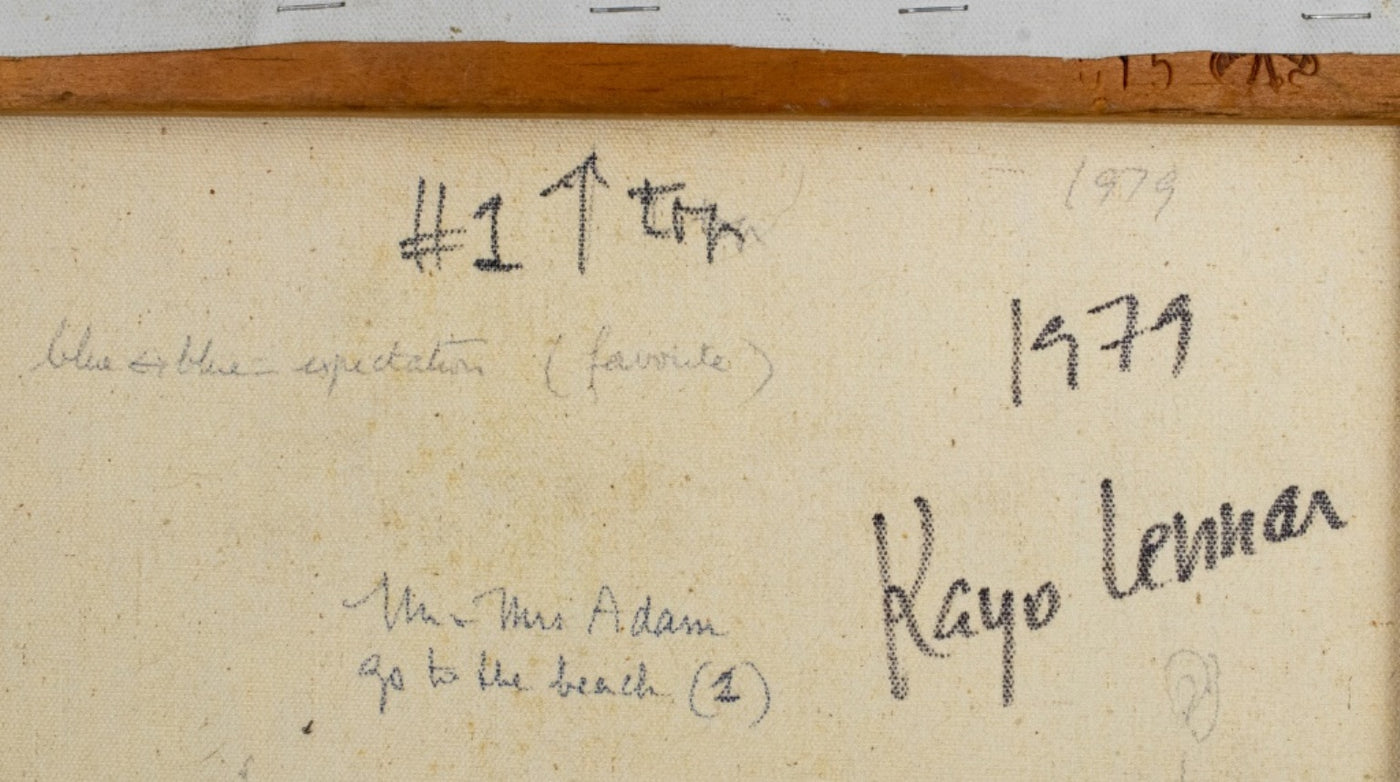 #1 ↑ top
1979
blue + blue = expectation (favorite)
1979
Kayo Lennar
Mr - Mrs Adam
go to the beach (1)